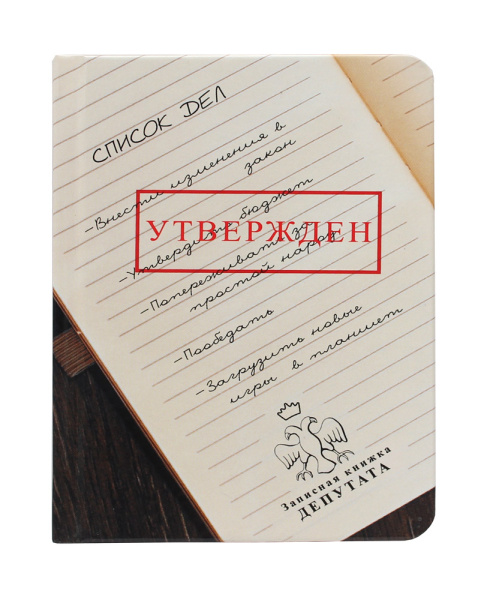 СПИСОК ДЕЛ
-Внести изменения в
закон
-Утвердить бюджет
УТВЕРЖДЕН
-Попереживать за
простой народ
-Пообедать
-Загрузить новые
игры в планшет
Записная книжка
ДЕПУТАТА